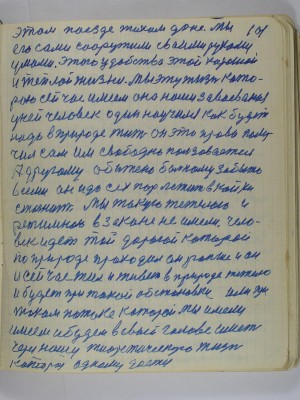 этом поезде таком доме. Мы 101
его сами соорудили своими руками
умами. Этого удобства этой хорошей
и теплой жизни. Мы эту жизнь кото-
рою сейчас имеем она нами завоевана
у ней человек один научился как будет
надо в природе жить он это право полу-
чил сам им свободно пользоваться
А другому обыкено больному забыть
всеми он до сех пор лежить в койки
стогнить мы такую
в законе не имели. чело-
век идет той дорогой которой
по природе проходил он раньше и он
и сейчас жил и живет в природе
и будет при такой обстановки или при
таком потоке которой мы имели
имеем и будем в своей голове иметь
через нашу жизнь
которую одному дости